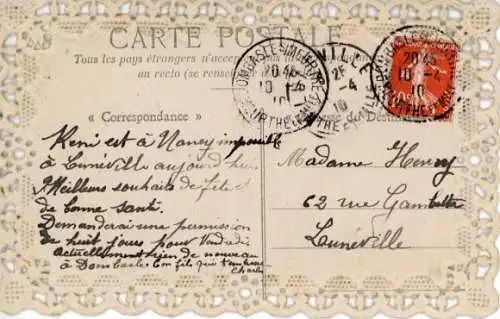 CARTE POSTALE
Tous les pays étrangers n'accep
au recto (se rense
« Correspondance »
DOMBASLE S/ MEURTHE
20 45
10 -4
10
MEURTHE ET M
VILLE
4
10
20 45
10 -4
10
René est à Nancy impossible
à Lunéville aujourd'hui
Meilleurs souhaits de fête et
de bonne santé.
Demanderai une permission
de huit jours pour
Actuellement rien de nouveau
à Dombasle Ton fils qui t'embrasse
Charles
Madame Henry
62 rue Gambetta
Lunéville